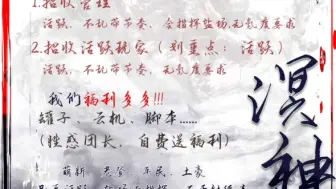 1.招收管理
活跃，不乱带节奏，会指挥盐场，无氪度要求
2.招收活跃玩家（划重点：活跃）
活跃，不乱带节奏，无氪度要求
我们福利多多!!!
罐子、云机、脚本......
(性感团长，自费送福利)
萌新、养老、平民、土豪
溟神